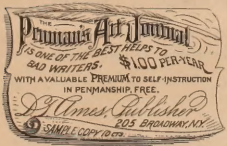 THE
Penman's Art Journal
IS ONE OF THE BEST HELPS TO
BAD WRITERS. $1.00 PER YEAR
WITH A VALUABLE PREMIUM TO SELF-INSTRUCTION
IN PENMANSHIP, FREE.
D. T. Ames, Publisher
205 BROADWAY, N.Y.
SAMPLE COPY 10 CTS.